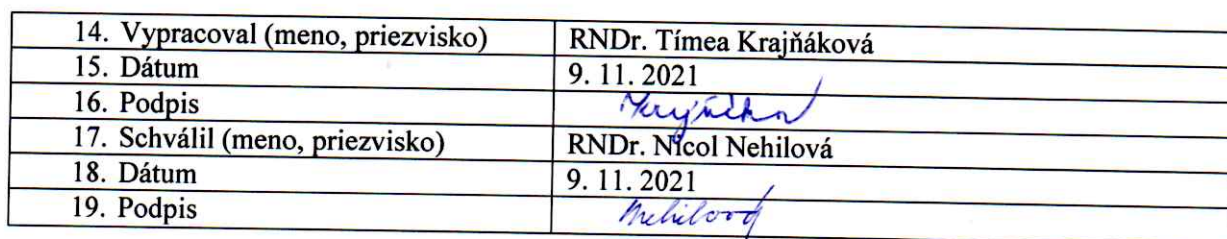 14. Vypracoval (meno, priezvisko) RNDr. Tímea Krajňáková
15. Dátum 9. 11. 2021
16. Podpis
17. Schválil (meno, priezvisko) RNDr. Nicol Nehilová
18. Dátum 9. 11. 2021
19. Podpis